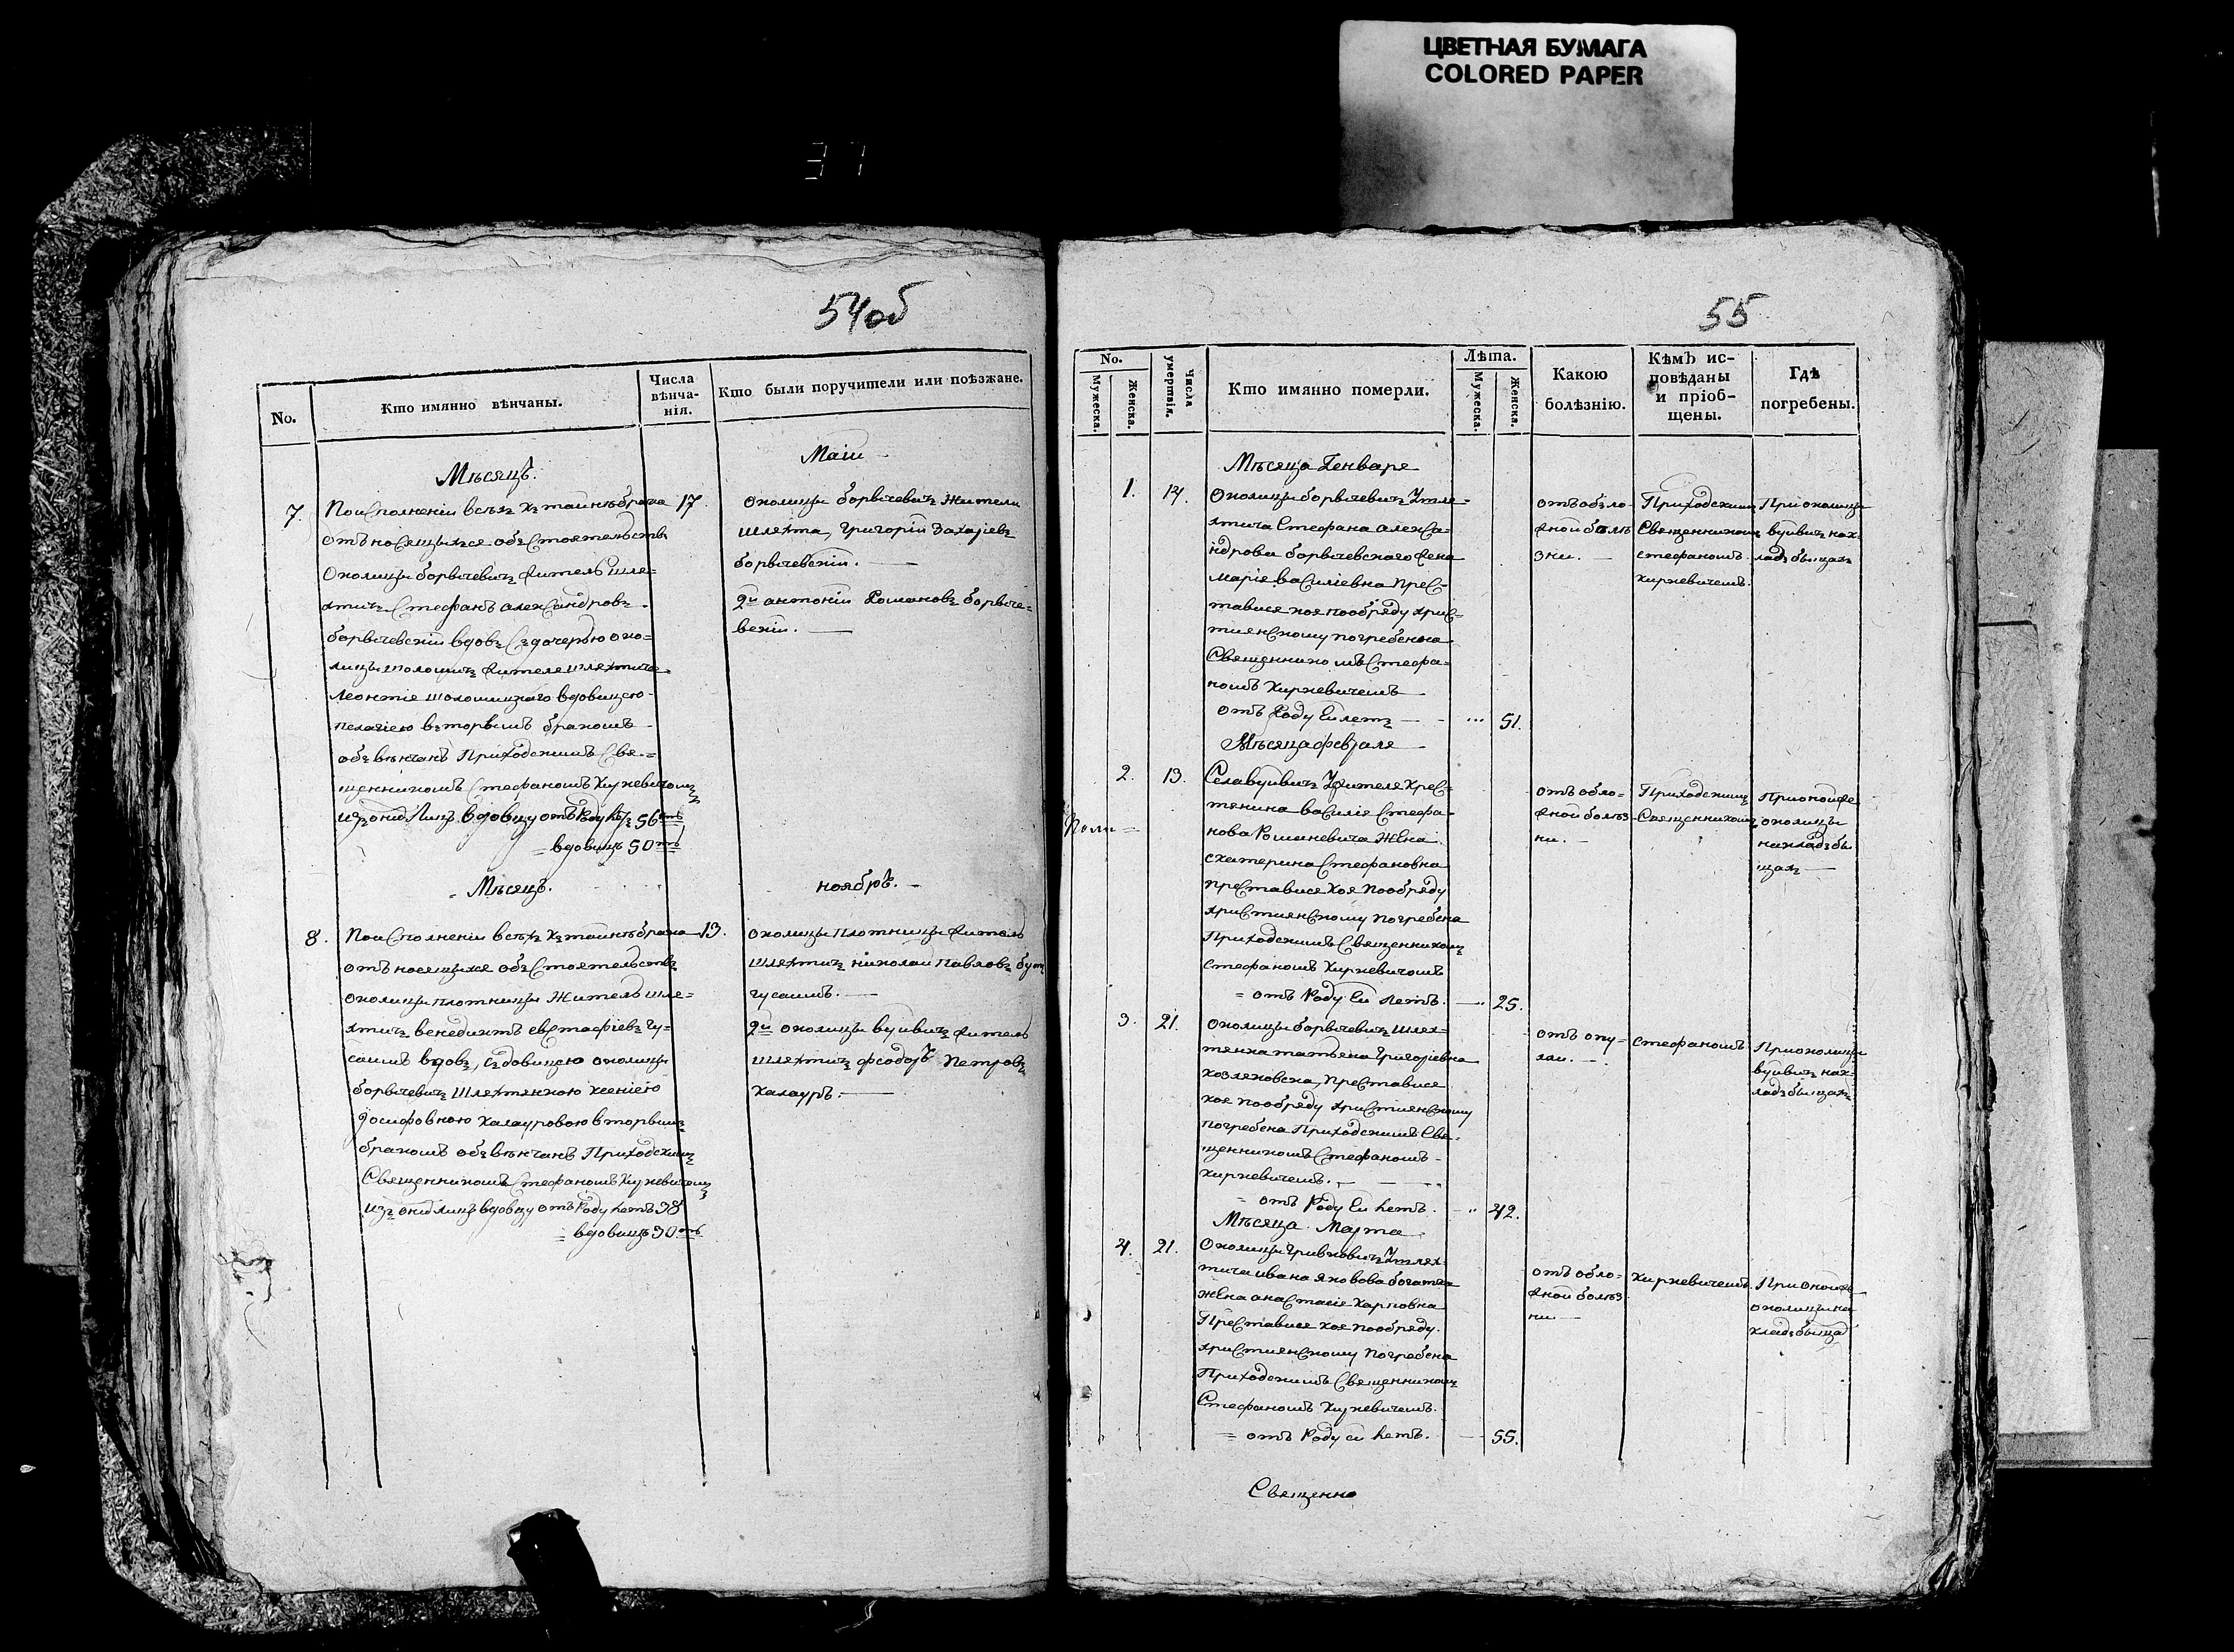 ЦВЕТНАЯ БУМАГА
COLORED PAPER
37
54об
No.
Кто имянно вѣнчаны.
Числа вѣнча-
нія.
Кто были поручители или поѣзжане.
Мѣсяцъ.
Маіи
7.
По исполненіи всѣхъ къ тайнѣ брака
17.
отъносящихсе объстоятельствъ
Околицы борвичевичъ житель шле=
хтичъ Стефанъ александровъ
борвичевскій вдовъ съ дочерью око=
лицы шоломичъ жителе шляхтича
Леонтіе шоломицкаго вдовицею
пелагіею въторымъ бракомъ
объвѣнчанъ Приходскимъ Свя=
щенникомъ Стефаномъ Хиркевичомъ
изъ онихъ Лицъ вдовцу отъ Роду летъ 56
= вдовицѣ 50
Околицы борвичевичъ жители
шляхта, григорій Захаріевъ
борвичевскій.
2й антоній Романовъ борвиче=
вскій.
Мѣсяцъ.
ноябрь.
8.
По исполненіи всѣхъ къ тайнѣ брака
13.
отъносящихсе объстоятельствъ
околицы плотницы житель шле=
хтичъ венедиктъ евстафіевъ гу=
саимъ вдовъ, съ вдовицею околицы
борвичевичъ шляхтянкою ксеніею
Іосифовною калауровою вторымъ
бракомъ объвѣнчанъ Приходскимъ
Священникомъ Стефаномъ Хиркевичемъ
изъ онихъ лицъ вдовцу отъ Роду летъ 38
= вдовицѣ 30
околицы плотницы житель
шляхтичъ николаи Павловъ
гусаимъ.
2й околицы вуйвичъ житель
шляхтичъ феодоръ Петровъ
калауръ.
55
No.
Мужеска.
Женска.
Числа умертвія.
Кто имянно померли.
Лѣта.
Мужеска.
Женска.
Какою
болѣзнію.
Кѣмъ ис-
повѣданы
и пріоб-
щены.
Гдѣ
погребены.
Мѣсяца Генваре
1.
14.
Околицы борвичевичъ Шле=
хтича Стефана алекса=
ндрова борвичевскаго жена
Маріе василіевна Прес=
тависе кое пообряду хрис=
тиянскому погребенна
Священникомъ Стефа=
номъ Хиркевичемъ
отъ Роду Ей летъ
51.
отъ обло=
жной болѣ
зни.
Приходскимъ
Священникомъ
стефаномъ
хиркевичемъ.
При околицы
вуйвичъ нак=
ладъбищахъ
Мѣсяца февраля
2.
13.
Села вуйвичъ жителе Хрес=
тянина василіе Стефа=
нова Романевича Жена
екатерина Стефановна
Преставися кое пообряду
християнскому погребена
Приходскимъ Священникомъ
Стефаномъ Хиркевичомъ
= отъ Роду Ей летъ.
25.
отъ обло=
жной болѣз
ни.
Приходскимъ
Священникомъ
При оной же
околицы
накладъби
щахъ
3.
21.
Околицы борвичевичъ шлях=
тянка татьяна григоріевна
козляковска, Преставися
кое пообряду християнскому
погребена Приходскимъ Свя=
щенникомъ Стефаномъ
хиркевичемъ.
= отъ Роду Ей летъ.
42.
отъ опу=
хли.
стефаномъ
При околицы
вуйвичъ нак=
ладъбищахъ
Мѣсяца Марта
4.
21.
Околицы гривковичъ Шлях=
тича ивана яковова
жена анастасіе карповна
Преставися кое пообряду
християнскому погребена
Приходскимъ Священникомъ
Стефаномъ Хиркевичемъ.
= отъ Роду ей летъ.
55.
отъ обло=
жной болѣз
ни
хиркевичемъ.
При оной же
околицы на
кладъбища
Священно